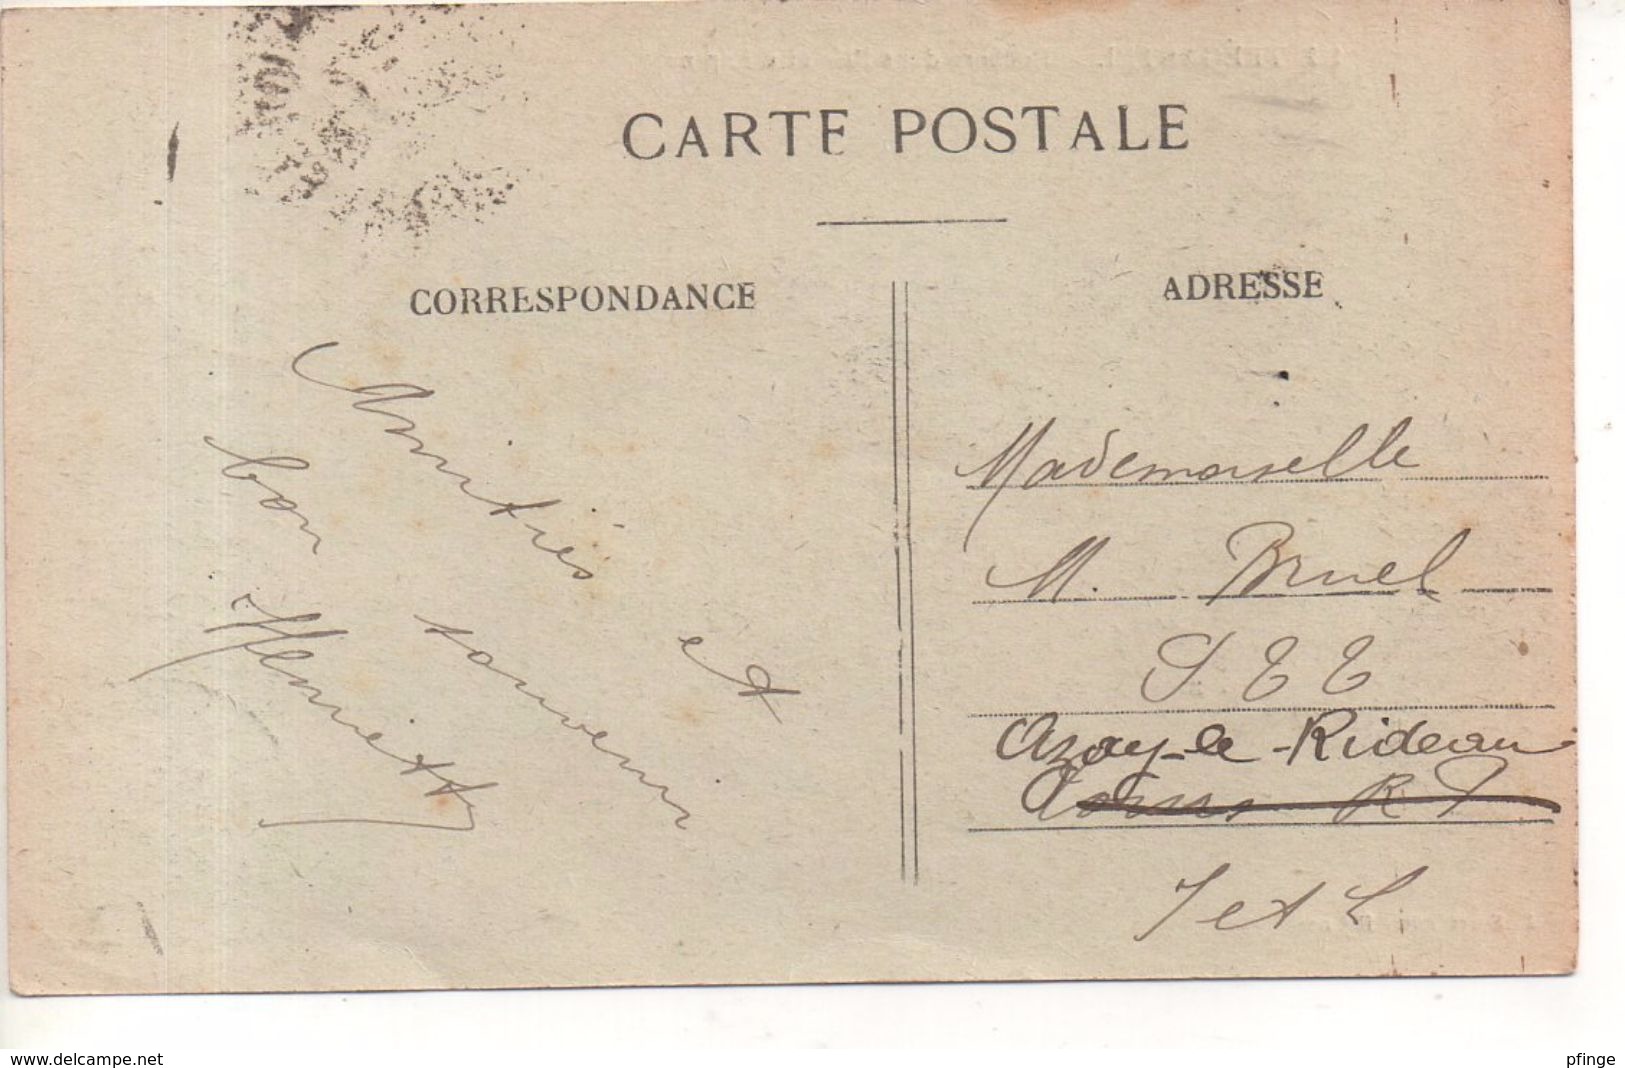 CARTE POSTALE
CORRESPONDANCE
Amitiés et
bon souvenir
Henriette
ADRESSE
Mademoiselle
M. Bruel
P T T
Azay-le-Rideau
Tours R P
I et L
www.delcampe.net
pfinge